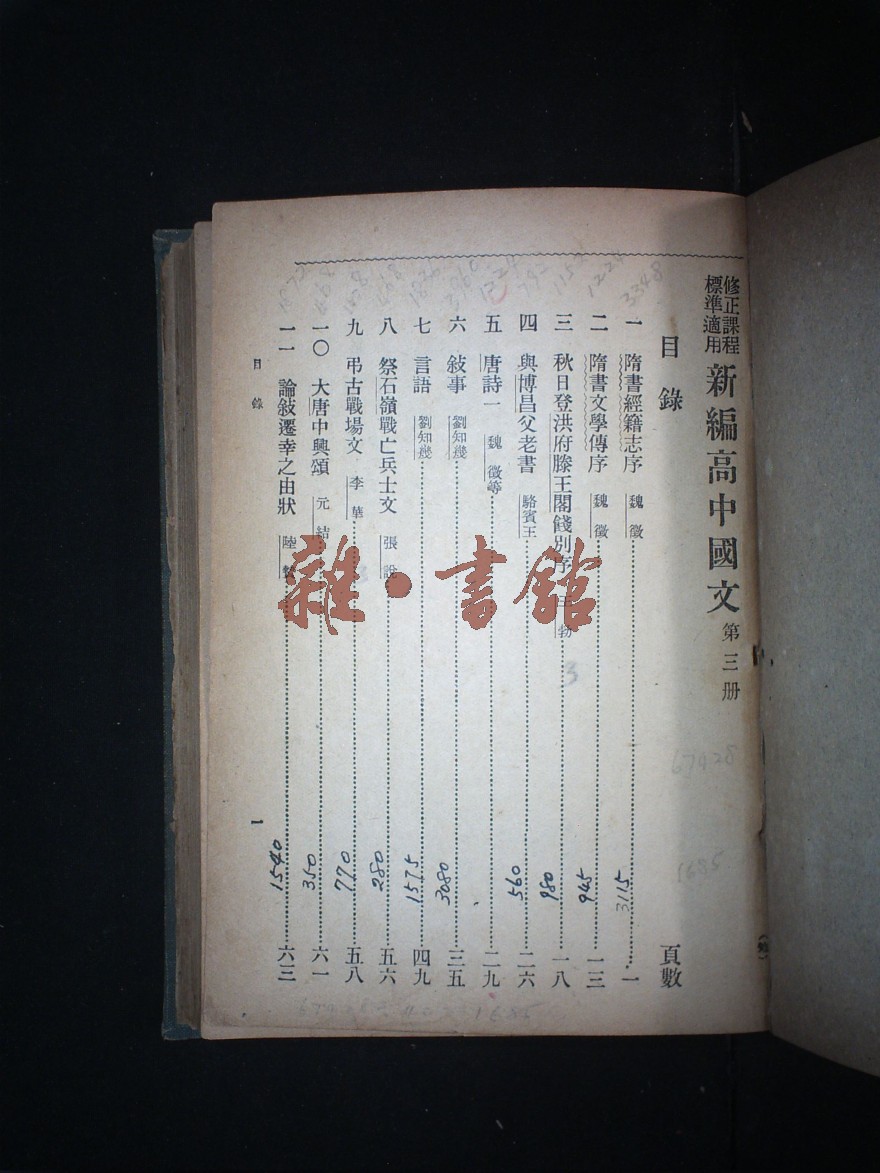 修正課程標準適用 新編高中國文 第三册
目錄 頁數
一 隋書經籍志序 魏徵 3115 一
二 隋書文學傳序 魏徵 945 一三
三 秋日登洪府滕王閣餞別序 王勃 3 980 一八
四 與博昌父老書 駱賓王 560 二六
五 唐詩一 魏徵等 二九
六 敍事 劉知幾 3080 三五
七 言語 劉知幾 1575 四九
八 祭石嶺戰亡兵士文 張說 280 五六
九 弔古戰場文 李華 770 五八
一〇 大唐中興頌 元結 350 六一
一一 論敍遷幸之由狀 陸贄 1540 六三
目錄 1
3348
1224
67428
1685
雜·書館